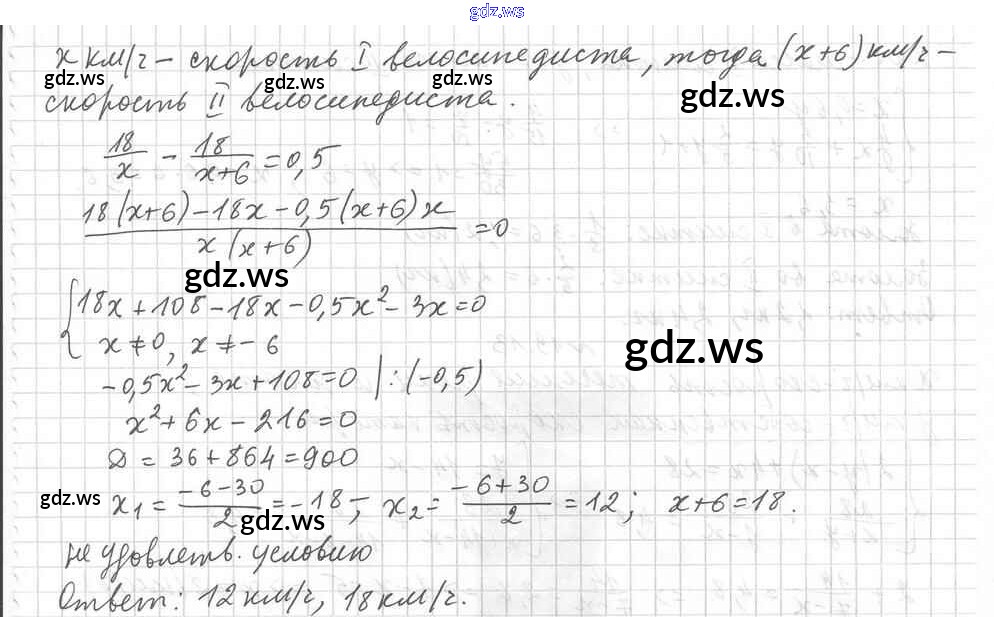 gdz.ws
x км/ч – скорость I велосипедиста, тогда (x+6) км/ч –
gdz.ws gdz.ws gdz.ws gdz.ws
скорость II велосипедиста.
18/x - 18/(x+6) = 0,5
(18(x+6) - 18x - 0,5(x+6)x)/(x(x+6)) = 0
gdz.ws
{ 18x + 108 - 18x - 0,5x² - 3x = 0
x ≠ 0, x ≠ -6
gdz.ws
-0,5x² - 3x + 108 = 0 | : (-0,5)
x² + 6x - 216 = 0
D = 36 + 864 = 900
gdz.ws
x₁ = (-6-30)/2 = -18 – ; x₂ = (-6+30)/2 = 12; x+6 = 18.
gdz.ws
не удовлетв. условию
Ответ: 12 км/ч, 18 км/ч.